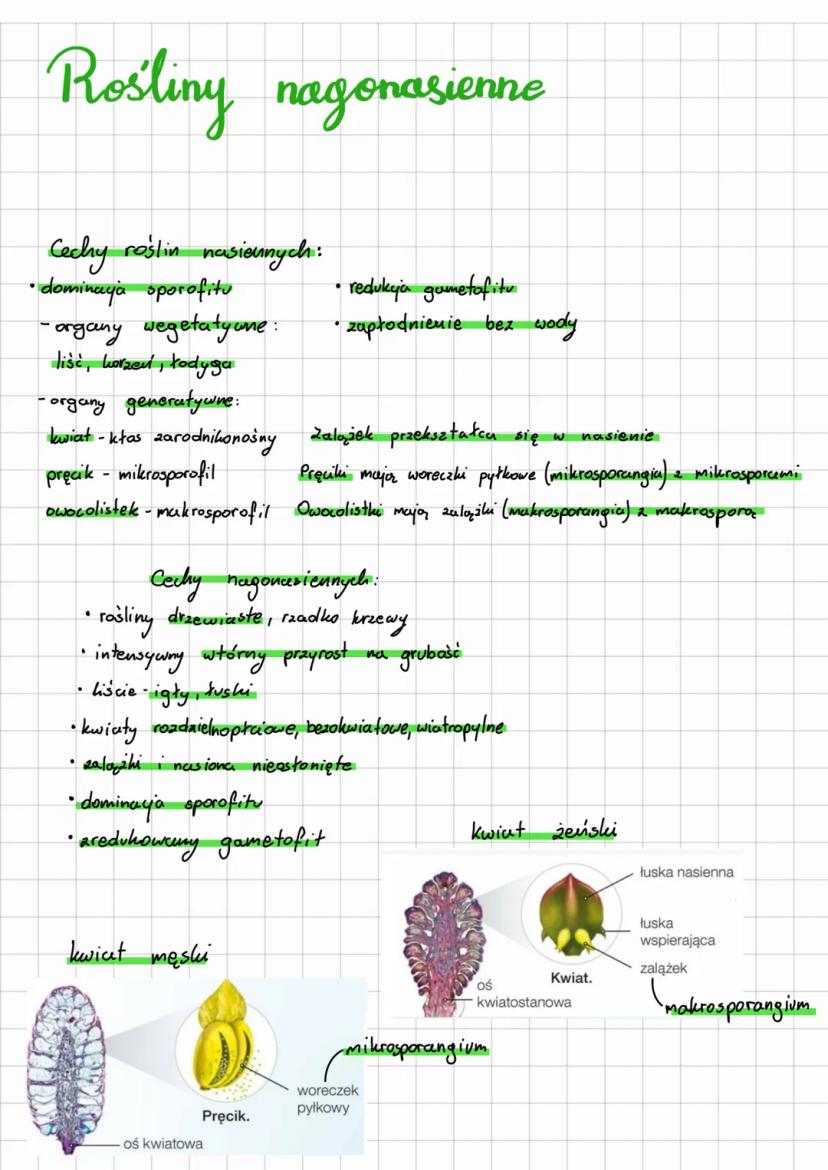 Rośliny nagonasienne
Cechy roślin nasiennych:
• dominacja sporofitu
- organy wegetatywne:
liść, korzeń, łodyga
- organy generatywne:
kwiat - kłos zarodnikonośny
pręcik - mikrosporofil
owocolistek - makrosporofil
• redukcja gametofitu
• zapłodnienie bez wody
Zalążek przekształca się w nasienie
Pręciki mają woreczki pyłkowe (mikrosporangia) z mikrosporami
Owocolistki mają zalążki (makrosporangia) z makrosporą
Cechy nagonasiennych:
• rośliny drzewiaste, rzadko krzewy
• intensywny wtórny przyrost na grubość
• liście - igły, łuski
• kwiaty rozdzielnopłciowe, bezokwiatowe, wiatropylne
• zalążki i nasiona nieosłonięte
• dominacja sporofitu
• zredukowany gametofit
kwiat żeński
łuska nasienna
łuska
wspierająca
zalążek
Kwiat.
oś
kwiatostanowa
makrosporangium
kwiat męski
mikrosporangium
woreczek
pyłkowy
Pręcik.
oś kwiatowa